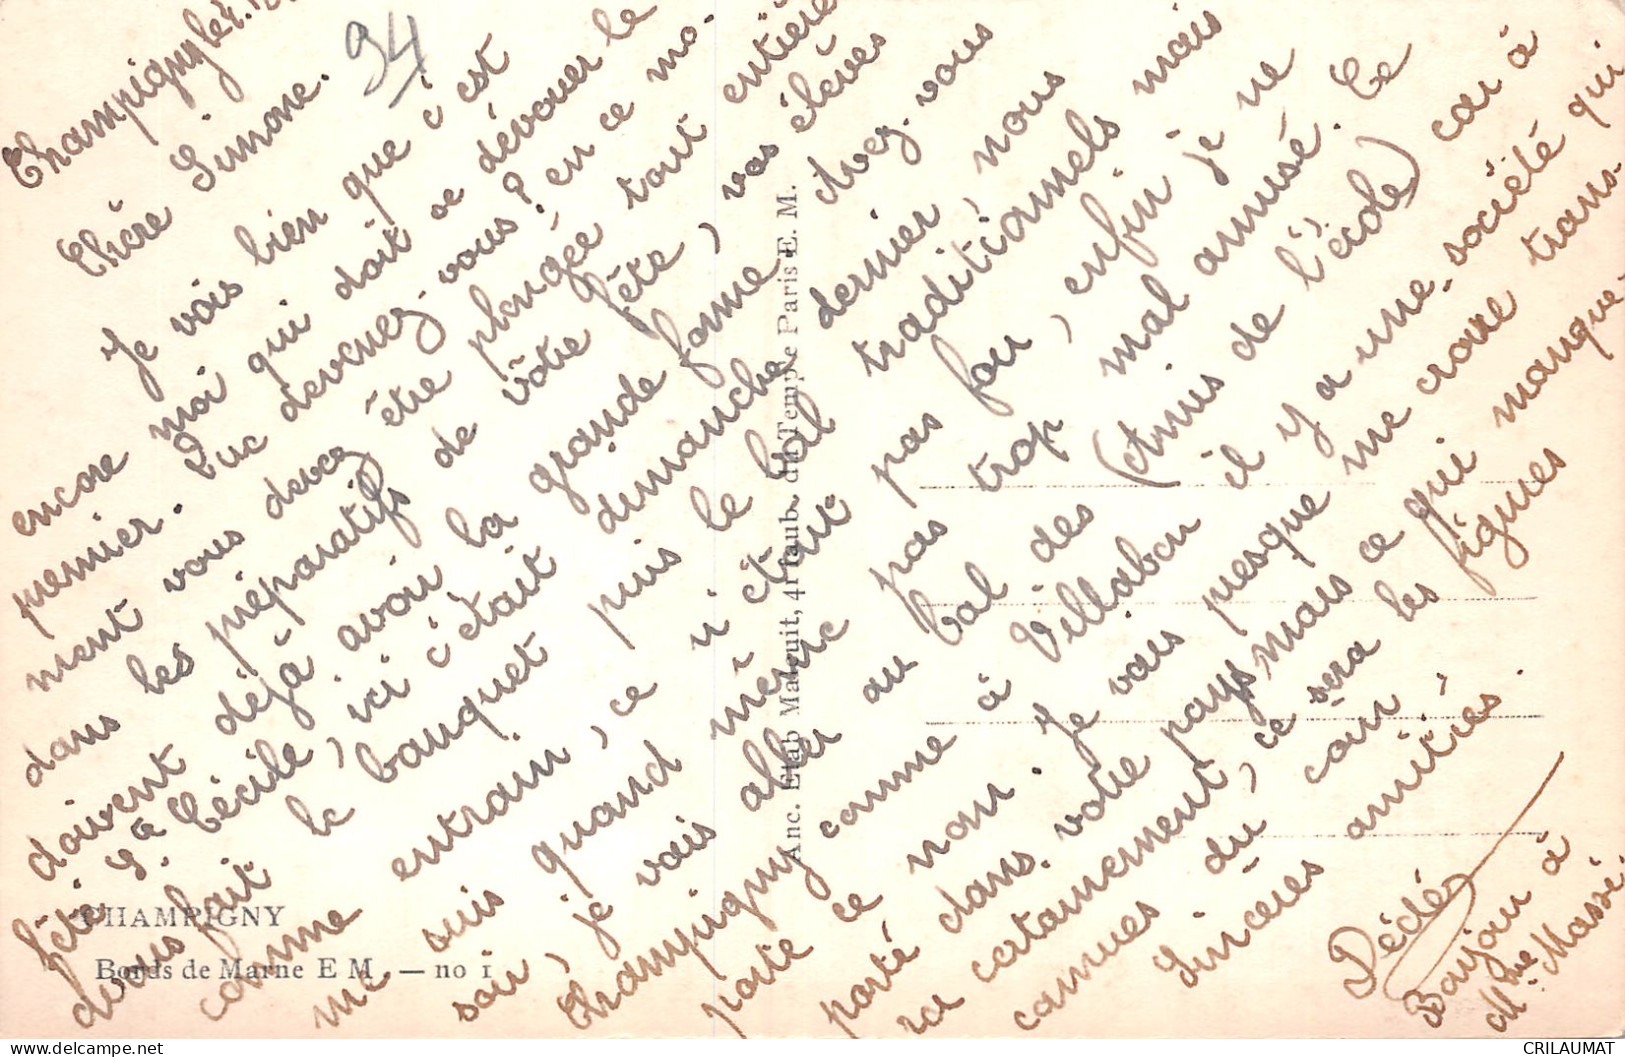 Champigny le
Chère Simone.
94
Je vois bien que c'est
encore moi qui doit se dévouer le
premier. Que devenez-vous? en ce mo-
ment vous devez être plongée tout entière
dans les préparatifs de vôtre fête, vos élèves
doivent déjà avoir la grande forme Avez-vous
fêté Ste Cécile, ici c'était dimanche dernier, nous
avons fait le banquet puis le bal traditionnels mais
comme entrain, ce n'était pas fou, enfin je ne
me suis quand même pas trop mal amusé. Ce
soir, je vais aller au bal des (Amis de l'école) car à
Champigny comme à Villabon il y a une société qui
porte ce nom. Je vais presque me croire trans-
porté dans votre pays mais ce qui manque-
ra certainement, ce sera les figures
connues du coin.
Sincères amitiés.
Dédé
Bonjour à
Mme Massé.
CHAMPIGNY
Bords de Marne E M — no 1
Anc. Etab Malcuit, 41 faub. du Temple Paris E. M.
CRILAUMAT